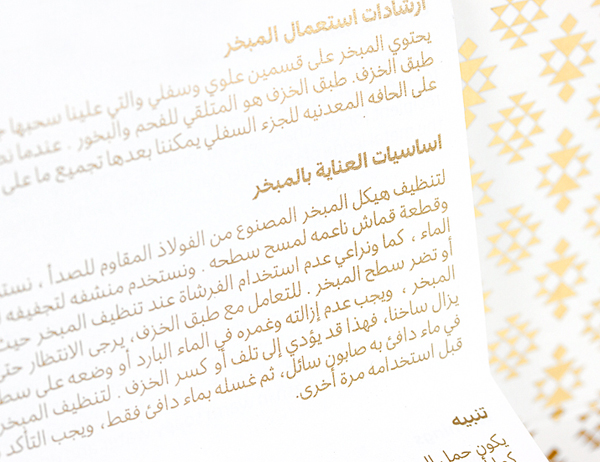 ارشادات استعمال المبخر
يحتوي المبخر على قسمين علوي وسفلي والتي علينا سحبها
طبق الخزف. طبق الخزف هو المتلقي للفحم والبخور . عندما
على الحافه المعدنيه للجزء السفلي يمكننا بعدها تجميع ما على
اساسيات العناية بالمبخر
لتنظيف هيكل المبخر المصنوع من الفولاذ المقاوم للصدأ ،
وقطعة قماش ناعمه لمسح سطحه . ونستخدم منشفه لتجفيفه
الماء ، كما ونراعي عدم استخدام الفرشاة عند تنظيف المبخر حيث
أو تضر سطح المبخر . للتعامل مع طبق الخزف، يرجى الانتظار حتى
المبخر ، ويجب عدم إزالته وغمره في الماء البارد أو وضعه على
يزال ساخنا، فهذا قد يؤدي إلى تلف أو كسر الخزف . لتنظيف المبخر
في ماء دافئ به صابون سائل، ثم غسله بماء دافئ فقط، ويجب التأكد
قبل استخدامه مرة أخرى.
تنبيه
يكون حمل